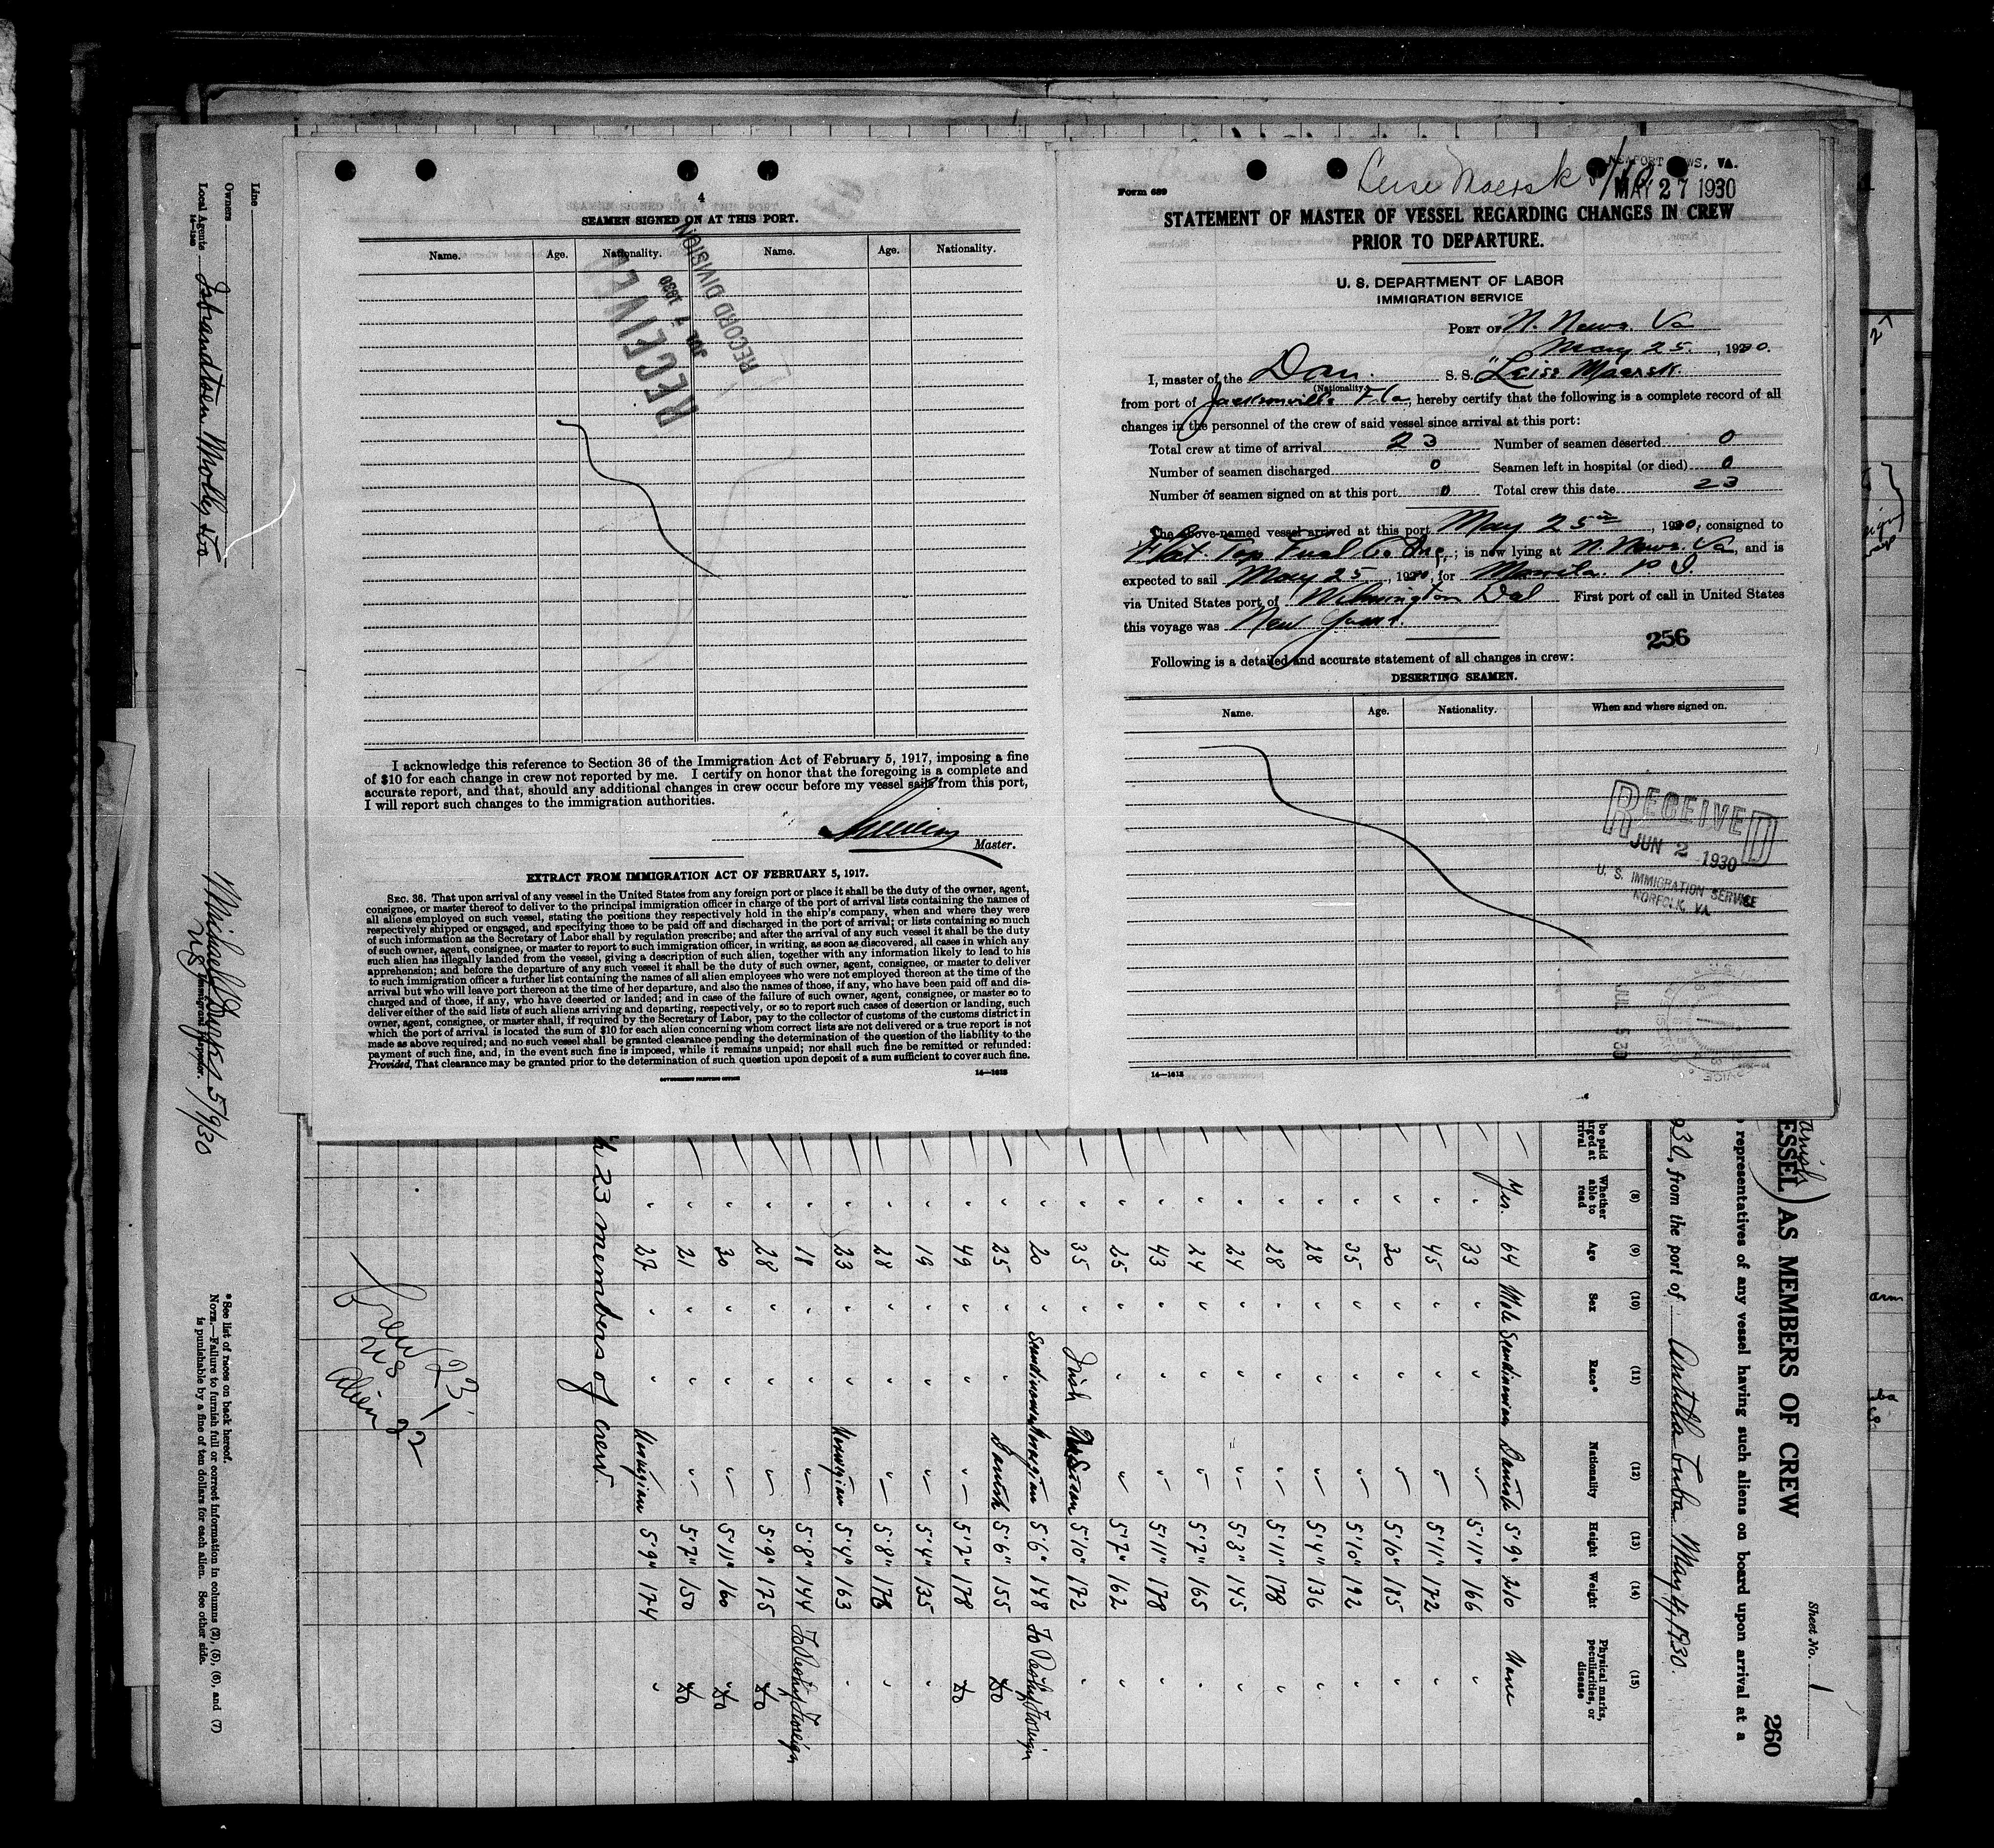 4
SEAMEN SIGNED ON AT THIS PORT.
Name. Age. Nationality. Name. Age. Nationality.
RECEIVED
JUL 7 1930
RECORD DIVISION
I acknowledge this reference to Section 36 of the Immigration Act of February 5, 1917, imposing a fine
of $10 for each change in crew not reported by me. I certify on honor that the foregoing is a complete and
accurate report, and that, should any additional changes in crew occur before my vessel sails from this port,
I will report such changes to the immigration authorities.
Master.
EXTRACT FROM IMMIGRATION ACT OF FEBRUARY 5, 1917.
SEC. 36. That upon arrival of any vessel in the United States from any foreign port or place it shall be the duty of the owner, agent,
consignee, or master thereof to deliver to the principal immigration officer in charge of the port of arrival lists containing the names of
all aliens employed on such vessel, stating the positions they respectively hold in the ship's company, when and where they were
respectively shipped or engaged, and specifying those to be paid off and discharged in the port of arrival; or lists containing so much
of such information as the Secretary of Labor shall by regulation prescribe; and after the arrival of any such vessel it shall be the duty
of such owner, agent, consignee, or master to report to such immigration officer, in writing, as soon as discovered, all cases in which any
such alien has illegally landed from the vessel, giving a description of such alien, together with any information likely to lead to his
apprehension; and before the departure of any such vessel it shall be the duty of such owner, agent, consignee, or master to deliver
to such immigration officer a further list containing the names of all alien employees who were not employed thereon at the time of the
arrival but who will leave port thereon at the time of her departure, and also the names of those, if any, who have been paid off and dis-
charged and of those, if any, who have deserted or landed; and in case of the failure of such owner, agent, consignee, or master so to
deliver either of the said lists of such aliens arriving and departing, respectively, or so to report such cases of desertion or landing, such
owner, agent, consignee, or master shall, if required by the Secretary of Labor, pay to the collector of customs of the customs district in
which the port of arrival is located the sum of $10 for each alien concerning whom correct lists are not delivered or a true report is not
made as above required; and no such vessel shall be granted clearance pending the determination of the question of the liability to the
payment of such fine, and, in the event such fine is imposed, while it remains unpaid; nor shall such fine be remitted or refunded:
Provided, That clearance may be granted prior to the determination of such question upon deposit of a sum sufficient to cover such fine.
GOVERNMENT PRINTING OFFICE 14—1613
Leise Maersk
NEWPORT NEWS, VA.
MAY 27 1930
Form 689
STATEMENT OF MASTER OF VESSEL REGARDING CHANGES IN CREW
PRIOR TO DEPARTURE.
U. S. DEPARTMENT OF LABOR
IMMIGRATION SERVICE
PORT OF N. News. Va
May 25, 1930.
I, master of the Dan. S. S. Leise Maersk.
(Nationality.)
from port of Jacksonville Fla, hereby certify that the following is a complete record of all
changes in the personnel of the crew of said vessel since arrival at this port:
Total crew at time of arrival 23 Number of seamen deserted 0
Number of seamen discharged 0 Seamen left in hospital (or died) 0
Number of seamen signed on at this port 0 Total crew this date 23
The above-named vessel arrived at this port May 25th, 1930, consigned to
Flat Top Fuel Co Inc; is now lying at N. News. Va and is
expected to sail May 25, 1930, for Manila P I
via United States port of Wilmington Dal First port of call in United States
this voyage was New York.
256
Following is a detailed and accurate statement of all changes in crew:
DESERTING SEAMEN.
Name. Age. Nationality. When and where signed on.
RECEIVED
JUN 2 1930
U. S. IMMIGRATION SERVICE
NORFOLK, VA.
14—1613
Sheet No. 1
260
ESSEL) AS MEMBERS OF CREW
representatives of any vessel having such aliens on board upon arrival at a
930, from the port of Antilla Cuba May 4, 1930.
(8) (9) (10) (11) (12) (13) (14) (15)
Whether able to read Age Sex Race* Nationality Height Weight Physical marks, peculiarities, or disease
Yes. 64 Male Scandinavian Danish 5'9" 210 None
" 33 " " " 5'11" 166 "
" 45 " " " 5'11" 172 "
" 30 " " " 5'10" 185 "
" 35 " " " 5'10" 192 "
" 28 " " " 5'4" 136 "
" 28 " " " 5'11" 178 "
" 24 " " " 5'8" 145 "
" 24 " " " 5'7" 165 "
" 43 " " " 5'11" 178 "
" 25 " " " 5'7" 162 "
" 35 " Irish 5'10" 172 "
" 20 " Scandinavian Norwegian 5'6" 148 To Reship Foreign
" 25 " " Danish 5'6" 155 do
" 49 " " " 5'7" 178 do
" 19 " " " 5'4" 135 "
" 28 " " " 5'8" 178 "
" 23 " " Norwegian 5'4" 163 "
" 18 " " " 5'8" 144 To Reship Foreign
" 28 " " " 5'9" 175 do
" 30 " " " 5'11" 160 do
" 21 " " " 5'7" 150 do
" 27 " " Norwegian 5'9" 174 "
23 members of crew.
Crew 23
US 1
Alien 22
Line
Owners
Local Agents Isbrandtsen Moller & Co
14—1240
Immigrant Inspector.
5/9/30
* See list of races on back hereof.
NOTE.—Failure to furnish full or correct information in columns (2), (5), (6), and (7)
is punishable by a fine of ten dollars for each alien. See other side.